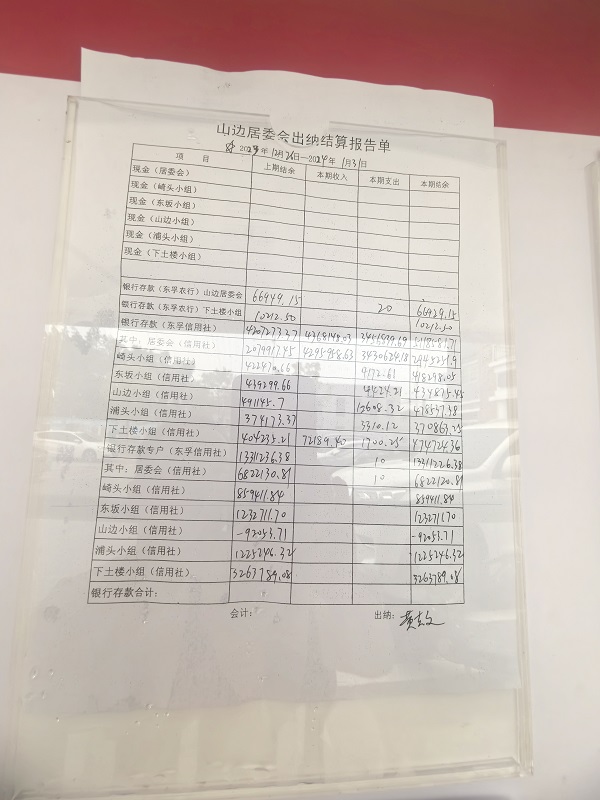 山边居委会出纳结算报告单
2023年12月26日—2024年1月31日
项 目 上期结余 本期收入 本期支出 本期结余
现金（居委会）
现金（崎头小组）
现金（东坂小组）
现金（山边小组）
现金（浦头小组）
现金（下土楼小组）
银行存款（东孚农行）山边居委会 66949.15 20 66929.15
银行存款（东孚农行）下土楼小组 10212.50 10212.50
银行存款（东孚信用社） 4207273.37 4368148.03
其中：居委会（信用社） 2079917.45 4295958.63 3430624.18
崎头小组（信用社） 9172.61
东坂小组（信用社） 439299.66 4424.21 434875.45
山边小组（信用社） 491145.7 12608.32 478537.38
浦头小组（信用社） 374173.37 3310.12 370863.25
下土楼小组（信用社） 404235.21 72189.40 1700.25 474724.36
银行存款专户（东孚信用社） 13311236.38 10 13311226.38
其中：居委会（信用社） 6822130.81 10 6822120.81
崎头小组（信用社） 859411.84 859411.84
东坂小组（信用社） 1232711.70 1232711.70
山边小组（信用社） -92053.71 -92053.71
浦头小组（信用社） 1225246.32 1225246.32
下土楼小组（信用社） 3263789.08 3263789.08
银行存款合计：
会计： 出纳：